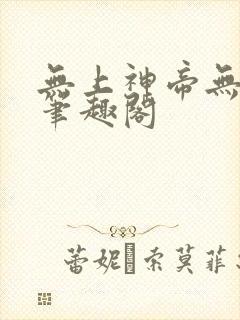 無上神帝無
筆趣閣
蕾妮·索莫菲